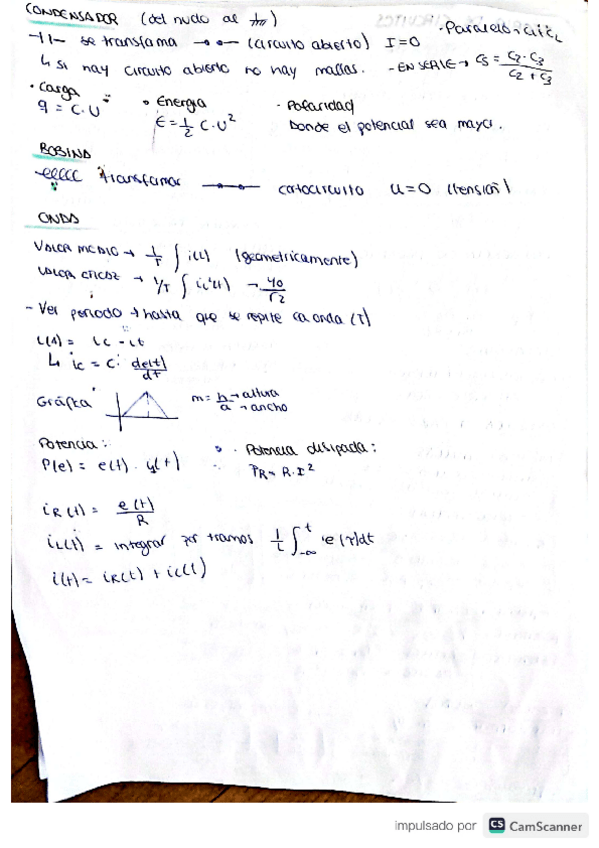 CONDENSADOR (del nudo al ⏚)
-||- se transforma → o o (circuito abierto) I=0 · Paralelo →
↳ Si hay circuito abierto no hay mallas. - EN SERIE → Cs = C2·C3 / C2+C3
· Carga · Energia · Polaridad
q = C.U E = 1/2 C.U² Donde el potencial sea mayor.
BOBINA
transformar cortocircuito U=0 (tensión)
ONDA
VALOR MEDIO → 1/T ∫ i(t) (geometricamente)
VALOR EFICAZ → 1/T ∫ i²(t) → Yo/√2
- Ver periodo → hasta que se repite la onda (T)
↳ ic = C · de(t)/dt
Gráfica m = h→altura / a→ancho
Potencia: · Potencia disipada:
P(e) = e(t) · y(t) PR = R.I²
iR(t) = e(t)/R
iL(t) = integrar por tramos 1/L ∫ -∞ t e(τ)dτ
i(t) = iR(t) + iL(t)
impulsado por CS CamScanner